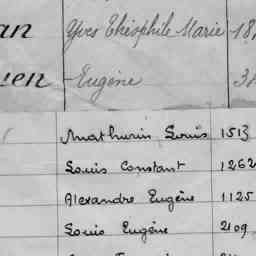 an Yves Théophile Marie 18
en Eugène 3
Mathurin Louis 1513
Louis Constant 1262
Alexandre Eugène 1125
Louis Eugène 2109